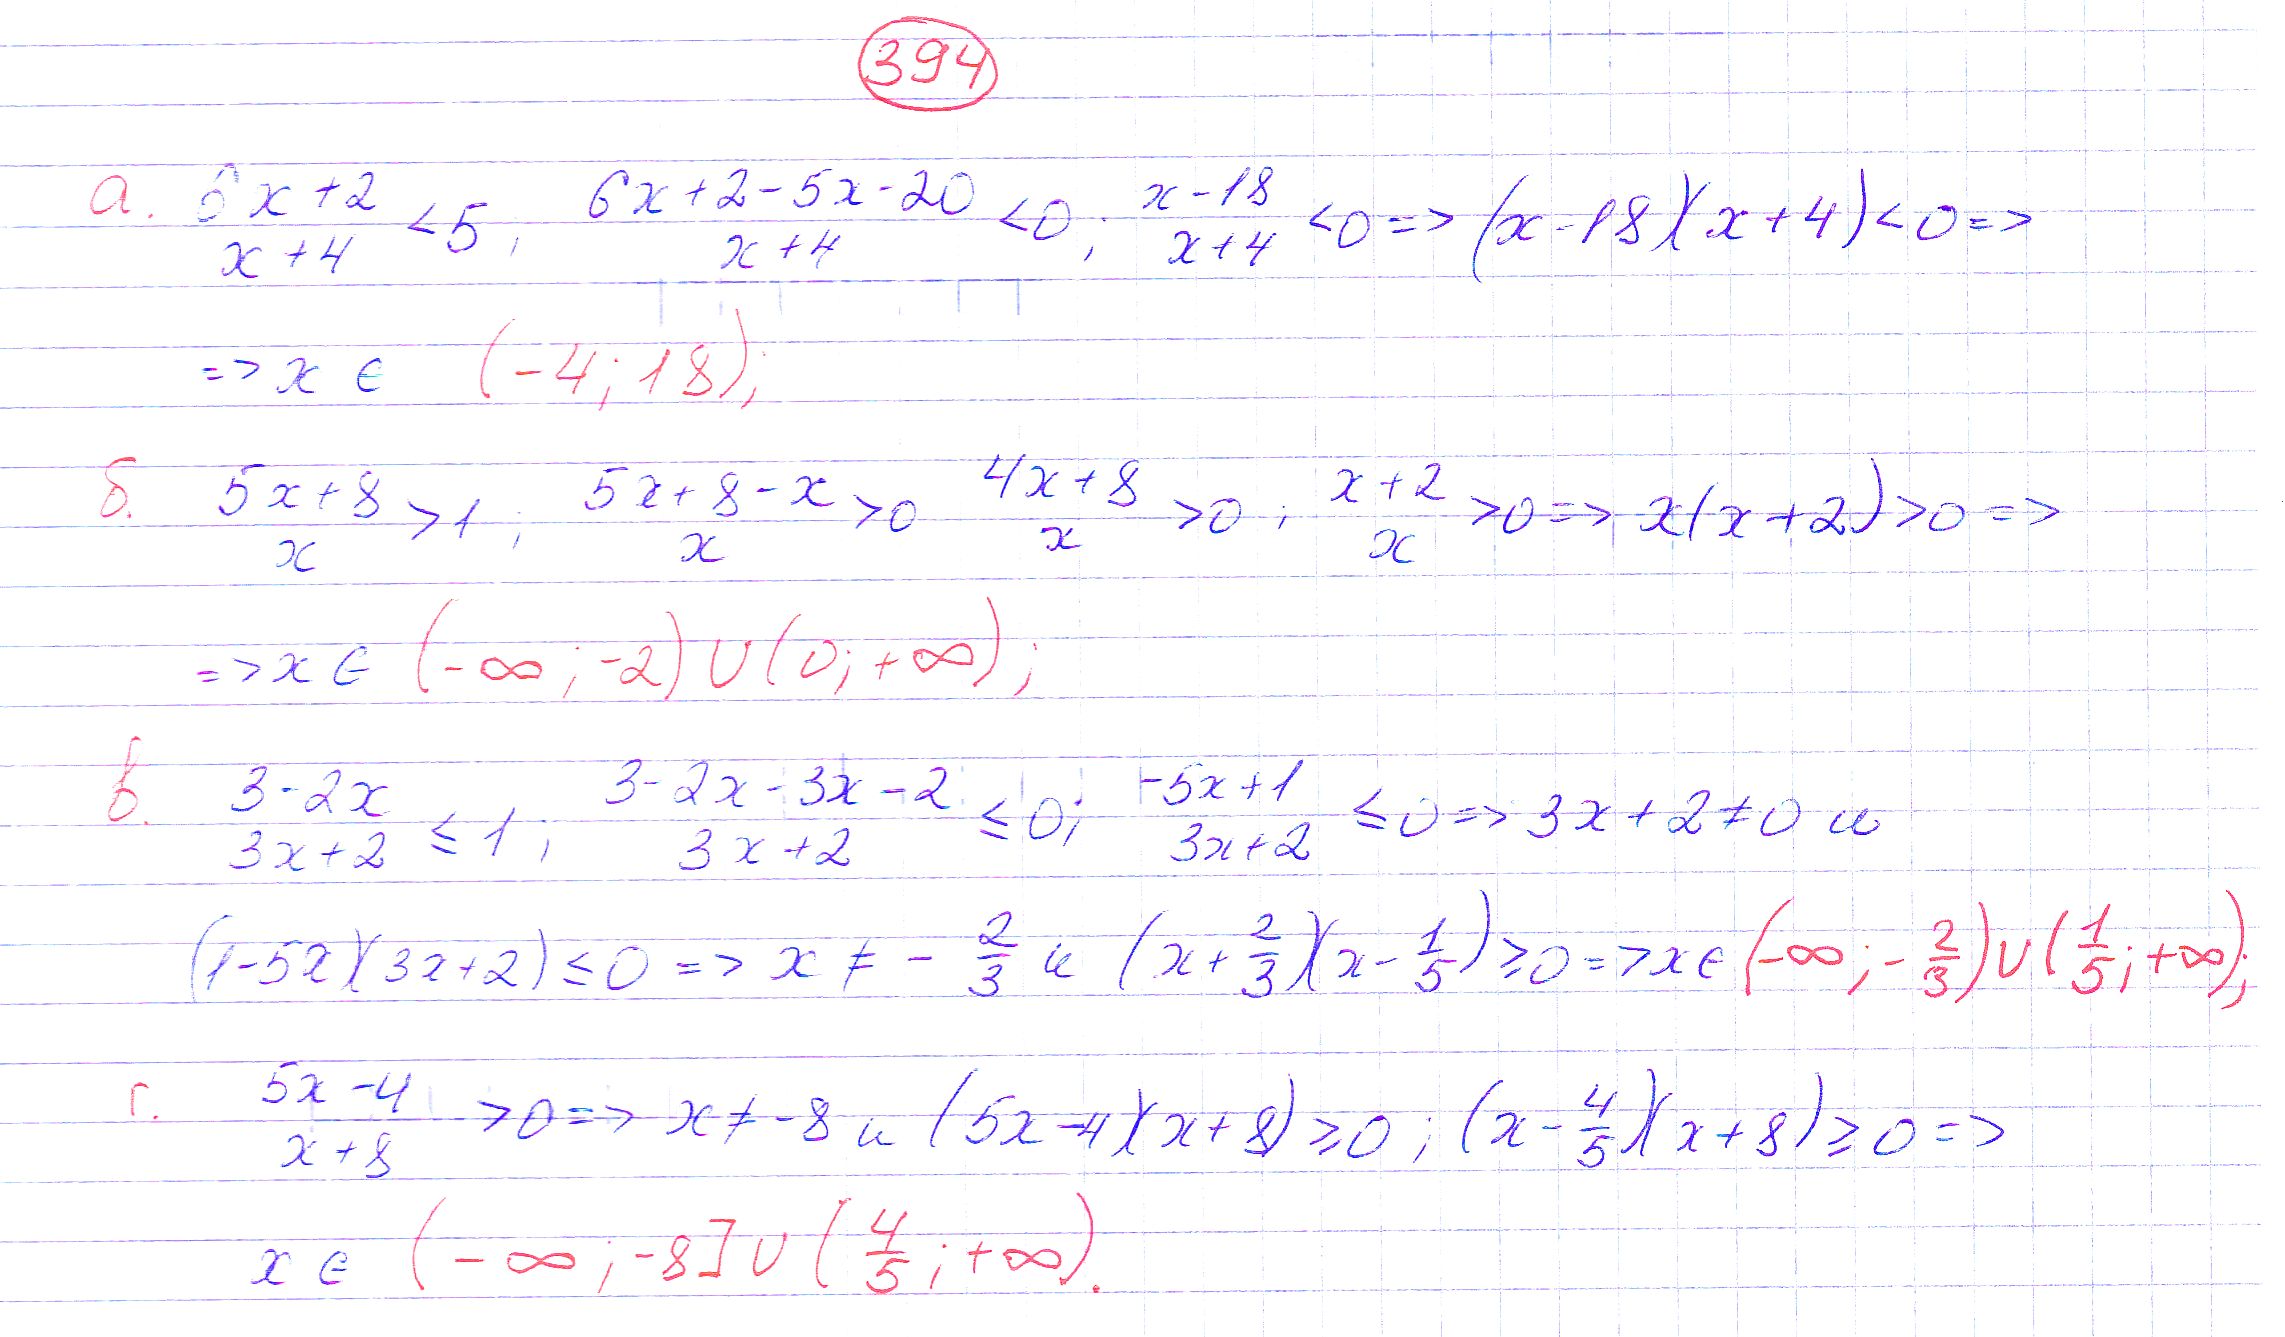 394
а. (6x+2)/(x+4) <5; (6x+2-5x-20)/(x+4) <0; (x-18)/(x+4) <0 => (x-18)(x+4)<0 =>
=> x ∈ (-4; 18);
б. (5x+8)/x >1; (5x+8-x)/x >0 (4x+8)/x >0; (x+2)/x >0 => x(x+2)>0 =>
=> x ∈ (-∞; -2) ∪ (0; +∞);
в. (3-2x)/(3x+2) ≤ 1; (3-2x-3x-2)/(3x+2) ≤ 0; (-5x+1)/(3x+2) ≤ 0 => 3x+2≠0 и
(1-5x)(3x+2) ≤ 0 => x ≠ - 2/3 и (x+2/3)(x-1/5) ≥ 0 => x ∈ (-∞; -2/3) ∪ (1/5; +∞);
г. (5x-4)/(x+8) >0 => x≠-8 и (5x-4)(x+8) ≥ 0; (x-4/5)(x+8) ≥ 0 =>
x ∈ (-∞; -8] ∪ (4/5; +∞).